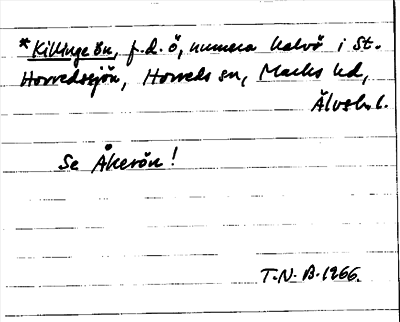 *Killinge ön, f.d. ö, numera halvö i St.
Horredssjön, Horreds sn, Marks hd,
Älvsb. l.
Se Åkerön!
T.N.B. 1966.